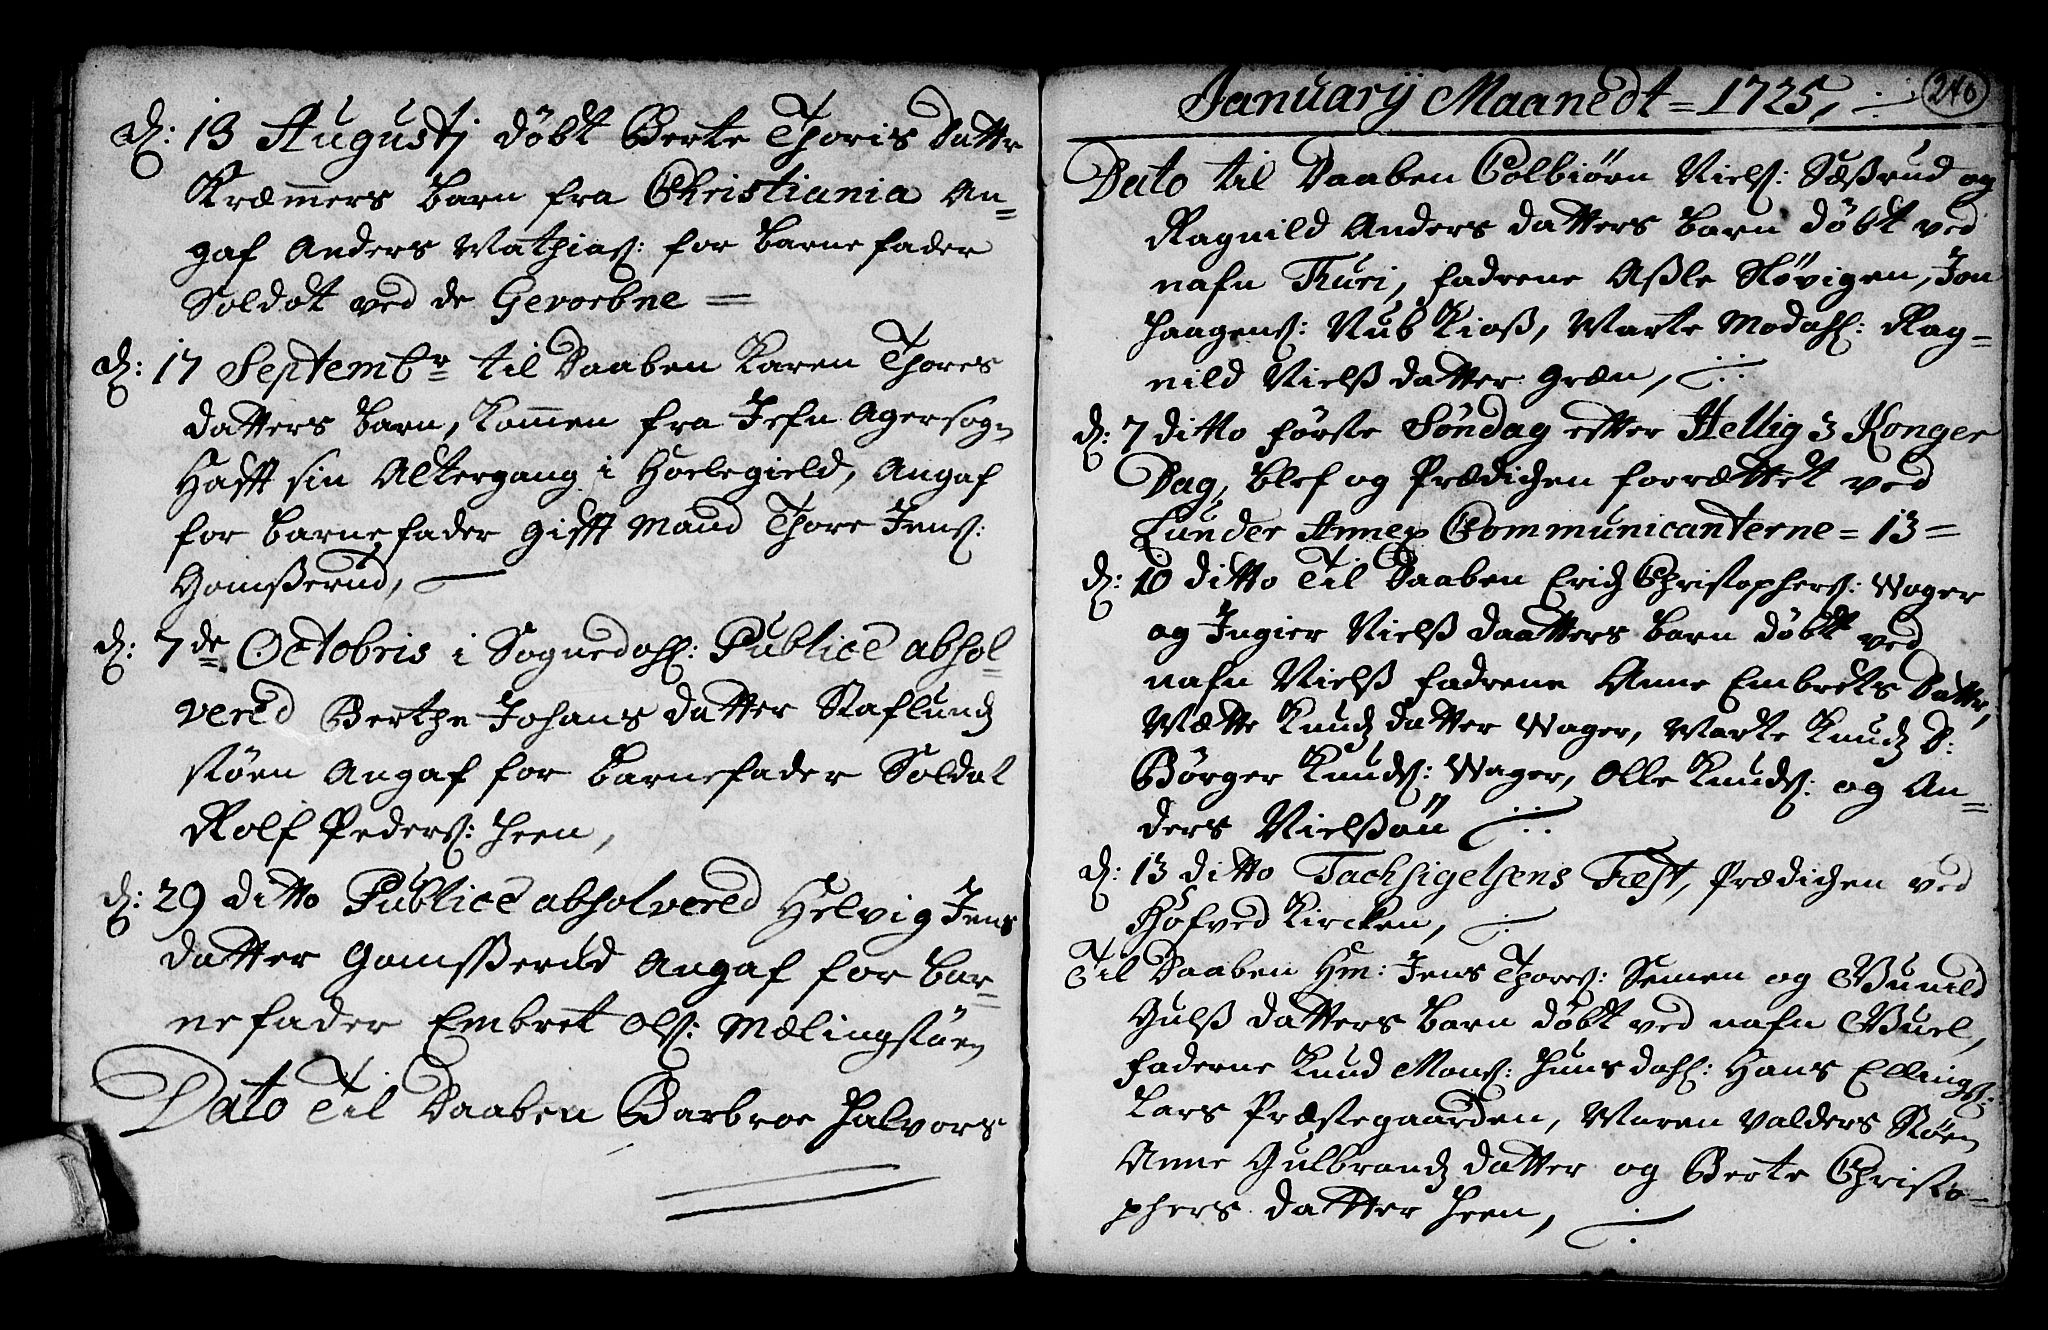 d: 13 Augustj döbt Berte Thoris Datter
Kræmmers barn fra Christiania An=
gaf Anders Mathias: for barne fader
Soldat ved de Gevorbne =
d: 17 Septembr til Daaben Karen Thores
datters barn, kommen fra Agersogn
hafft sin Altergang i Hoelegield, Angaf
for barne fader gifft Mand Thore Jens:
Gomsserud,
d: 7de Octobris i Sognedahl: Publice absol=
vered Berthe Johans datter
støen Angaf for barnefader Soldat
Rolf Peders: Heen,
d: 29 ditto Publice absolvered Helvig Jens
datter Gomsserud Angaf for bar=
nefader Embret Ols: Mælingstøen
Dato Til Daaben Barbroe Halvors
January Maanedt = 1725,
246
Dato til Daaben Colbiörn Niels: og
Ragnild Anders datters barn döbt ved
nafn Turi, fadrene Asle Støvigen, Jon
Haagens: Marte Modahl: Rag=
nild Nielss datter Græn,
d: 7 ditto förste Söndag efter Hellig 3 Konger
Dag, blef og Prædichen forrættet ved
Lunder Annex Communicanterne = 13 =
d: 10 ditto Til Daaben Erich Christophers: Wager
og Ingier Nielss daatters barn döbt ved
nafn Nielss fadrene Anne Embrets Datter,
Mætte Knudz datter Wager, Marte Knudz D:
Börger Knuds: Wager, Olle Knuds: og An=
ders Nielssön
d: 13 ditto Tachsigelsens Fæst, Prædichen ved
Höfved Kircken,
Til Daaben Hm: Jens Thores: Semen og Gunild
Gulss datters barn döbt ved nafn Guel,
faderne Knud Mons: Hunsdahl: Hans Ellings:
Lars Præstegaarden, Maren Valders Støen
Anne Gulbrandz datter og Berte Christo=
phers datter Heen,